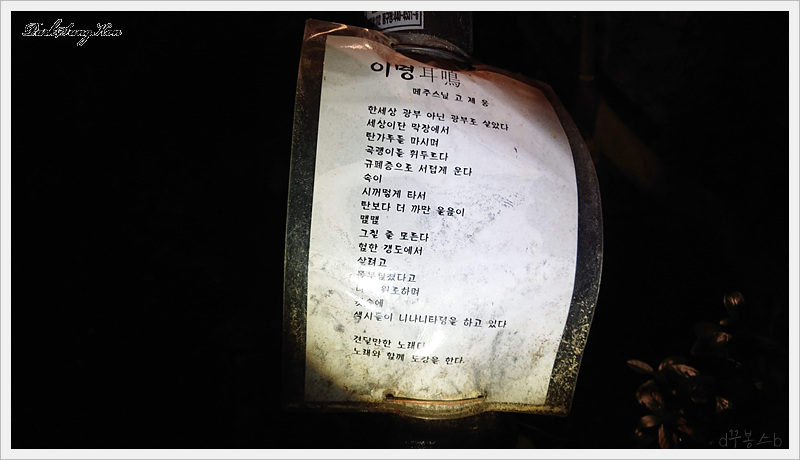 이명耳鳴
메주스님 고 제 웅
한세상 광부 아닌 광부로 살았다
세상이란 막장에서
탄가루를 마시며
곡괭이를 휘두르다
규폐증으로 서럽게 운다
속이
시꺼멓게 타서
탄보다 더 까만 울음이
맴맴
그칠 줄 모른다
험한 갱도에서
살려고
위로하며
색시들이 니나니타령을 하고 있다
견딜만한 노래다
노래와 함께 도강을 한다.
d쭈봉스b